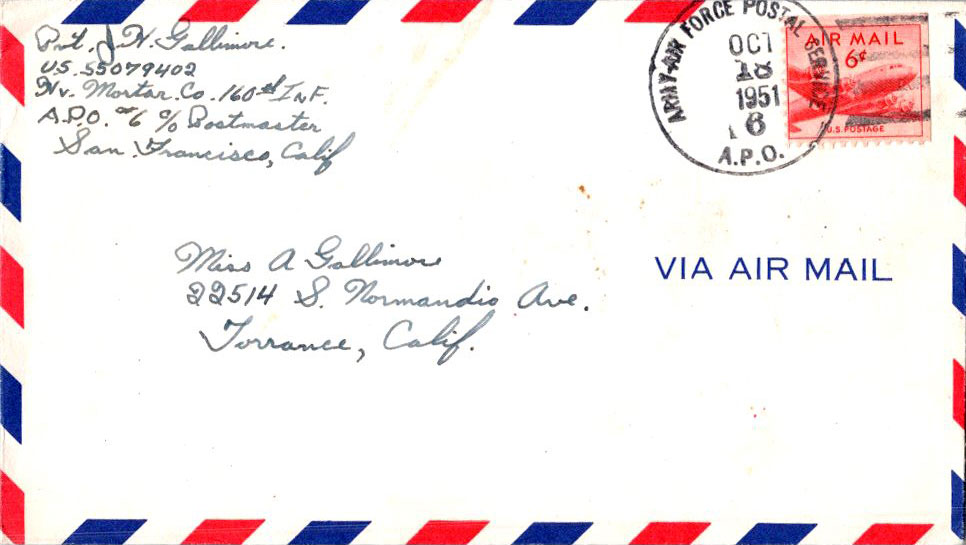 Pvt. J. N. Gallimore.
U.S. 55079402
Hv. Mortar. Co. 160th INF.
A.P.O. #6 c/o Postmaster
San. Francisco, Calif
ARMY-AIR FORCE POSTAL SERVICE
OCT
18
1951
6
A.P.O.
AIR MAIL
6¢
U.S. POSTAGE
VIA AIR MAIL
Miss A Gallimore
22514 S. Normandio Ave.
Torrance, Calif.